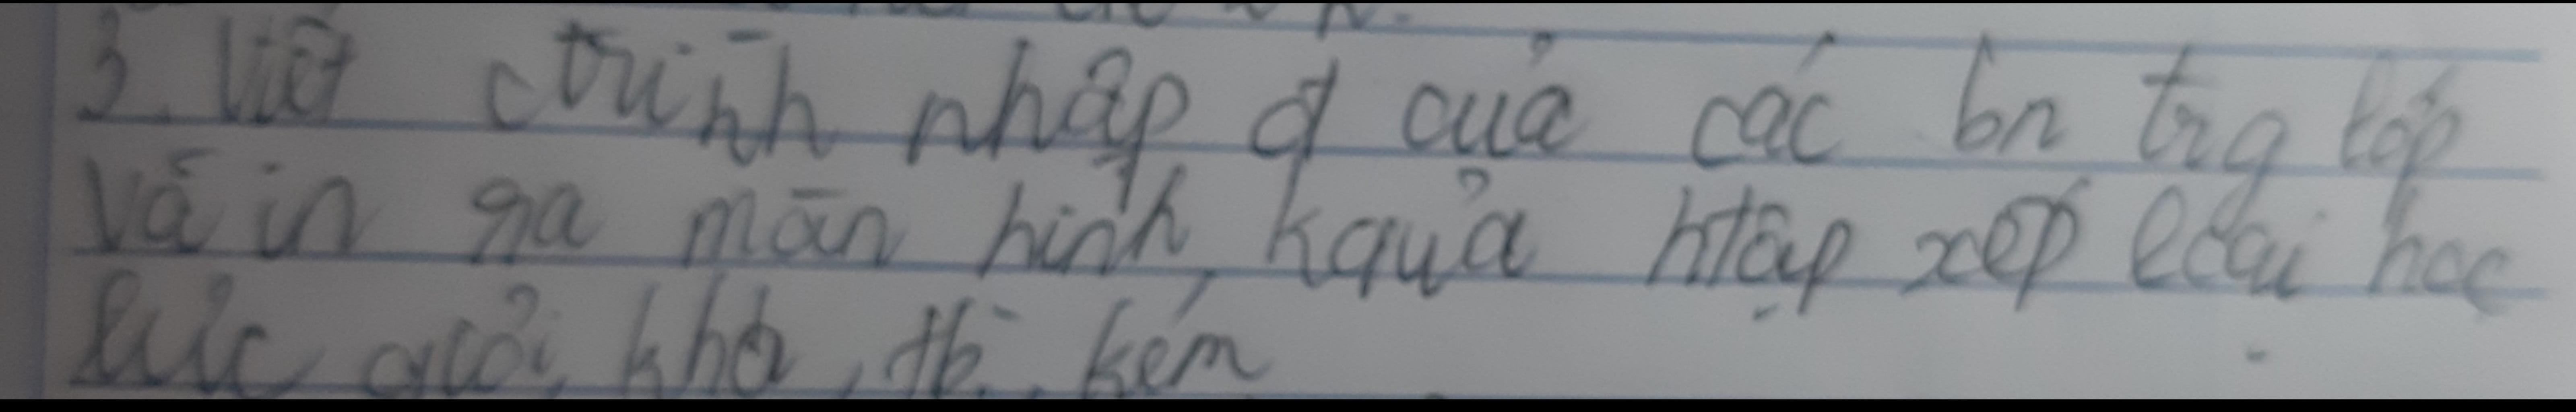 3. Viết ctrình nhập đ của các bn trg lớp
và in ra màn hình, kquả htập xếp loại học
lực giỏi, khá, tb, kém